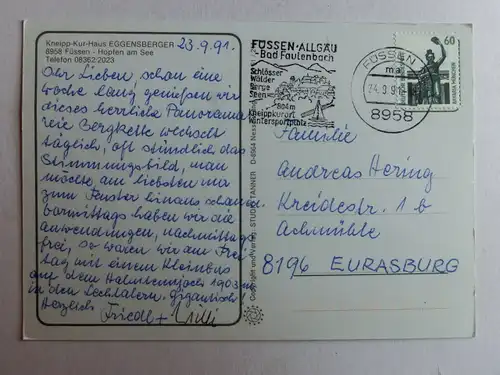 Kneipp-Kur-Haus EGGENSBERGER
8958 Füssen - Hopfen am See
Telefon 08362/2023
23.9.91.
Ihr Lieben, schon eine
Woche lang genießen wir
dieses herrliche Panorama,
die Bergkette wechselt
täglich, oft stündlich das
Stimmungsbild, man
möchte am liebsten nur
zum Fenster hinaus schauen.
Vormittags haben wir die
Anwendungen, nachmittags
frei, so waren wir am Frei-
tag mit einem Kleinbus
auf dem Hahntennjoch 1903 m
in den Lechtalern. gigantisch!
Herzlich
Friedl + Willi
Copyright und Verlag: STUDIO TANNER D-8964 Nesselwang
FÜSSEN·ALLGÄU
Bad Faulenbach
Schlösser
Wälder
Berge
Seen
804m
Kneippkurort
Wintersportplatz
FÜSSEN
ma
24.9.91
8958
60
Familie
Andreas Hering
Kreidestr. 1 b
Achmühle
8196 EURASBURG